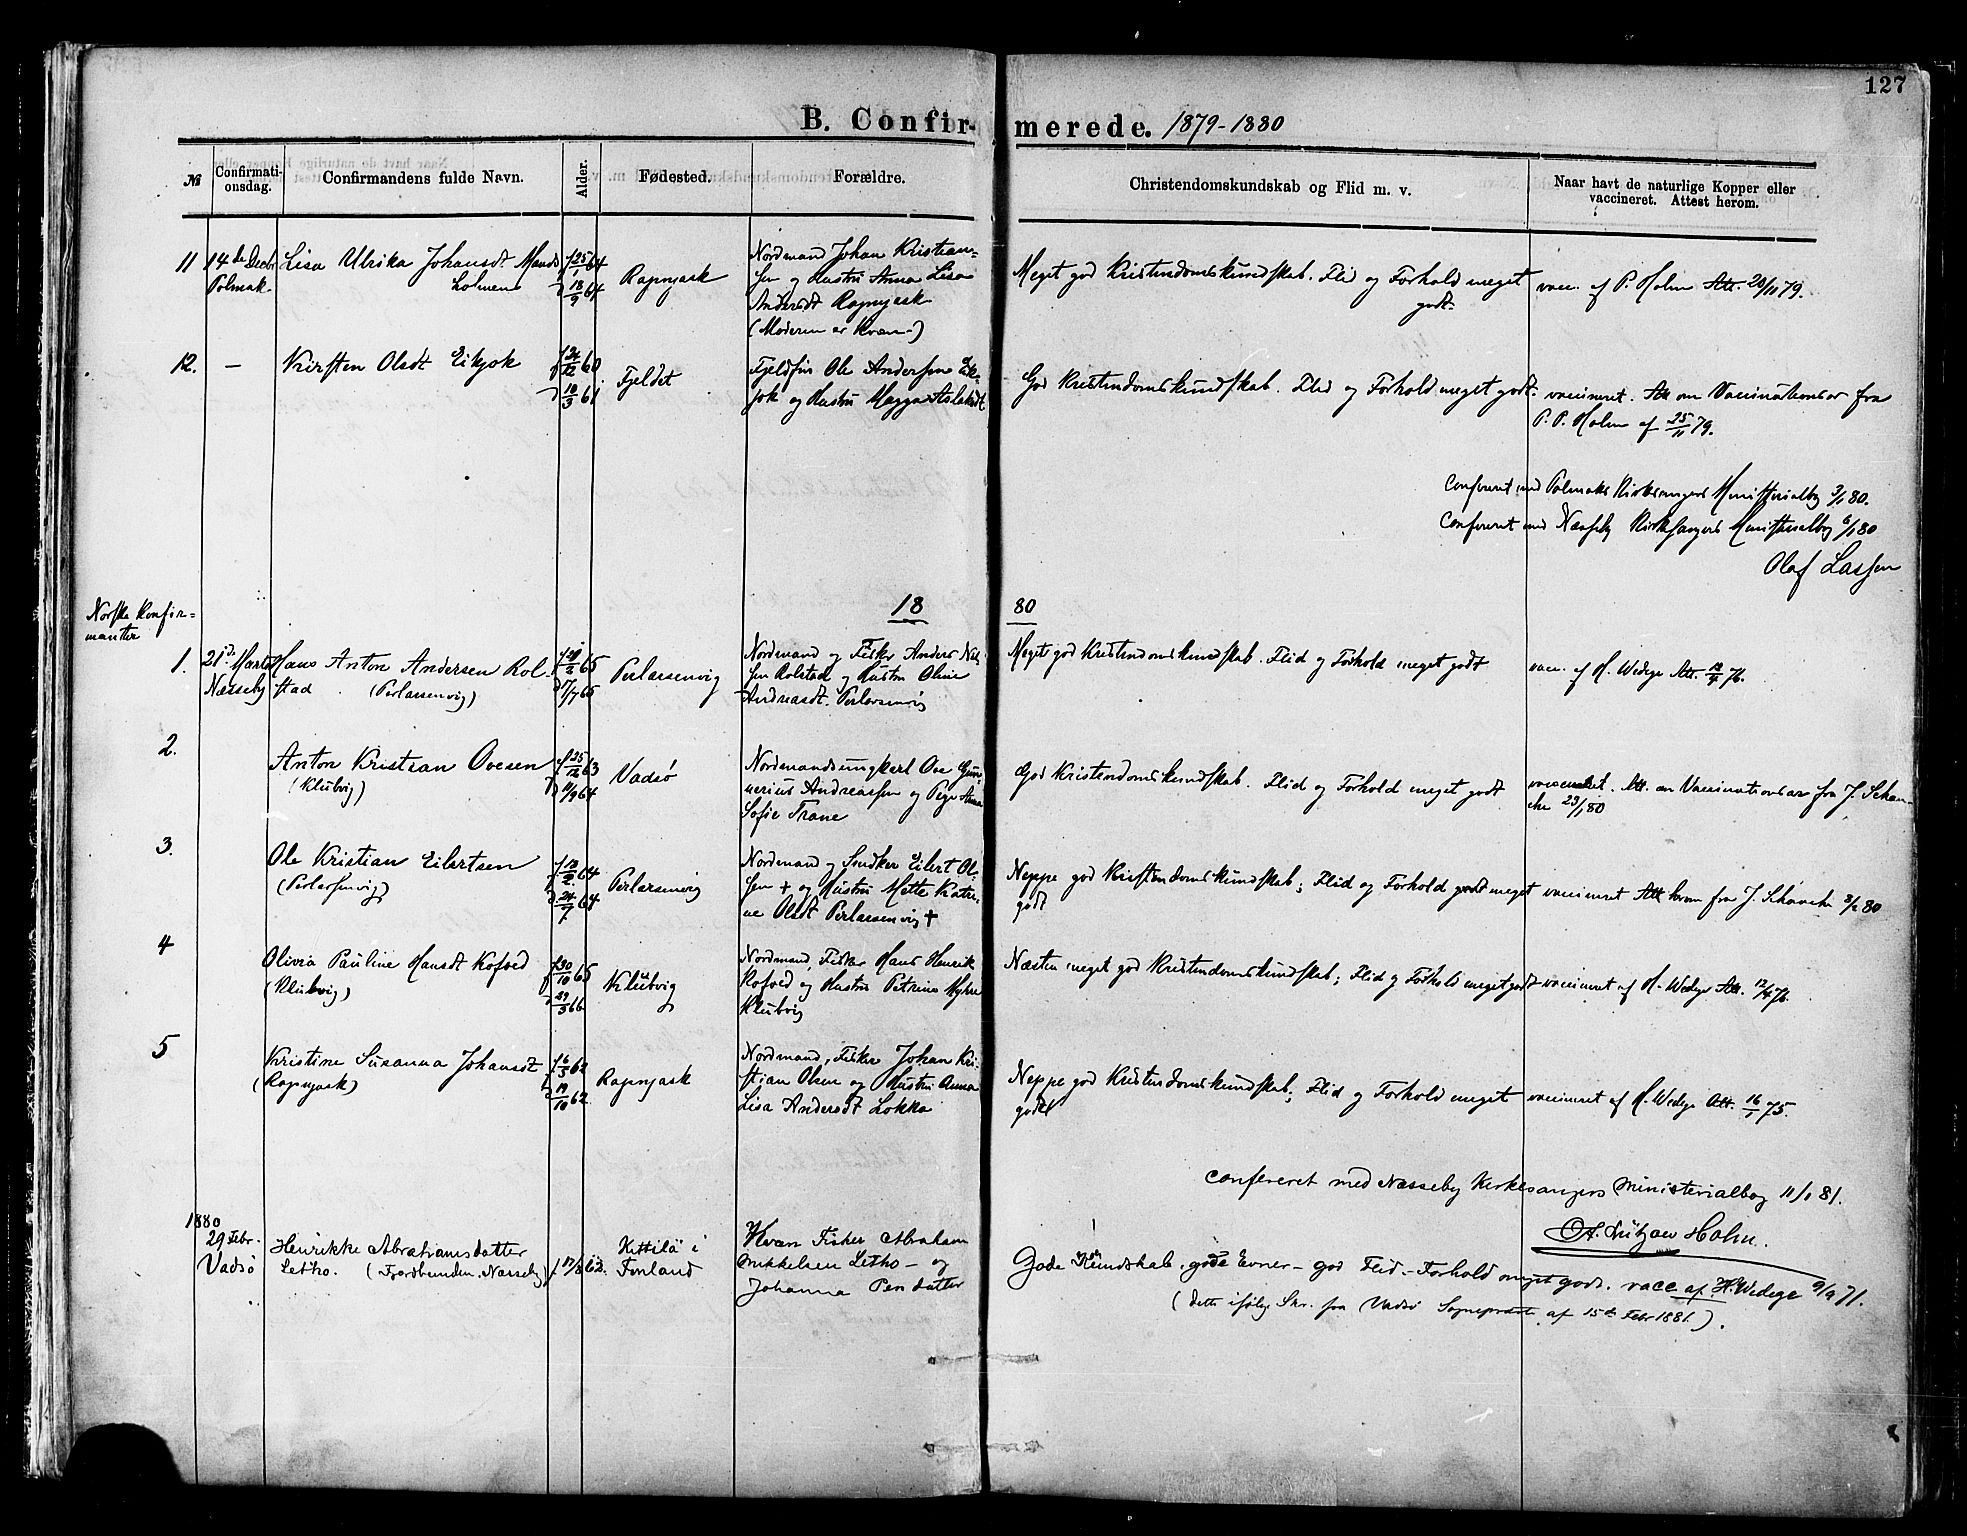 127
B. Confirmerede. 1879-1880
№ Confirmationsdag. Confirmandens fulde Navn. Alder. Fødested. Forældre. Christendomskundskab og Flid m. v. Naar havt de naturlige Kopper eller vaccineret. Attest herom.
11 14de Decbr Polmak
Lisa Ulrika Johansdt Mands
holmen
f 25/1 64
d 18/9 64
Rapnjask
Nordmand Johan Kristian-
sen og Hustru Anna Lisa
Andersdt Rapnjask
(Moderen er Kvæn-)
Meget god Kristendomskundskab. Flid og Forhold meget
godt.
vacc. af P. Holm Att. 20/11 79.
12. —
Kirsten Olsdt Eikjok
f 24/12 60
d 10/3 61
Fjeldet
Fjeldfin Ole Andersen Eik-
jok og Hustru Magga Aslaksdt
God Kristendomskundskab. Flid og Forhold meget godt.
vaccineret. Att om Vaccinationsar fra
P. P. Holm af 25/11 79.
Confereret med Polmaks Kirkesangers Ministerialbog 3/1 80.
Confereret med Næsseby Kirkesangers Ministerialbog 6/1 80
Olaf Lassen
Norske Konfir=
manter
18 80
1. 21de Marts
Næsseby
Hans Anton Andersen Rol-
stad (Perlarsenvig)
65
d 17/7 65
Perlarsenvig
Nordmand og Fisker Anders Nil-
sen Rolstad og Hustru Oline
Andreasdt. Perlarsenvig
Meget god Kristendomskundskab. Flid og Forhold meget godt
vacc. af H. Wedege Att. 76.
2.
Anton Kristian Ovesen
(Klubvig)
f 25/12 63
d 11/9 64
Vadsø
Nordmandsungkarl Ove Gun-
nerius Andreassen og Pige Anna
Sofie Trane
God Kristendomskundskab. Flid og Forhold meget godt
vaccineret. Att. om Vaccinationsar fra J. Schan-
che 23/1 80
3.
Ole Kristian Eilertsen
(Perlarsenvig)
f 13/2 64
d 24/7 64
Perlarsenvig
Nordmand og Snedker Eilert Ol-
sen † og Hustru Mette Katri-
ne Olsdt Perlarsenvig †
Neppe god Kristendomskundskab; Flid og Forhold godt meget
godt
vaccineret Att herom fra J. Schanche 3/2 80
4
Olivia Pauline Hansdt Kofoed
(Klubvig)
f 30/10 65
d 29/3 66
Klubvig
Nordmand, Fisker Hans Henrik
Kofoed og Hustru Petrine Myhre
Klubvig
Næsten meget god Kristendomskundskab; Flid og Forhold meget godt
vaccineret af H. Wedege Att. 12/4 76.
5
Kristine Susanna Johansdt
(Rapnjask)
f 16/3 62
d 19/10 62
Rapnjask
Nordmand, Fisker Johan Kri-
stian Olsen og Hustru Anna
Lisa Andersdt Lokka
Neppe god Kristendomskundskab; Flid og Forhold meget
godt
vaccineret af H. Wedege Att. 16/1 75.
Confereret med Næsseby Kirkesangers Ministerialbog 11/1 81.
Lützow Holm.
1880
29 Febr.
Vadsø
Henrikke Abrahamsdatter
Letho. (Fjordbunden, Næsseby)
f. 17/8 62.
Kittilä i
Finland
Kvæn Fisker Abraham
Mikkelsen Letho - og
Johanna Persdatter
Gode Kundskab. gode Evner - god Flid. - Forhold meget godt. vacc. af H. Wedege 9/9 71.
(dette ifølge Skr. fra Vadsø Sognepræst af 15de Febr 1881.).